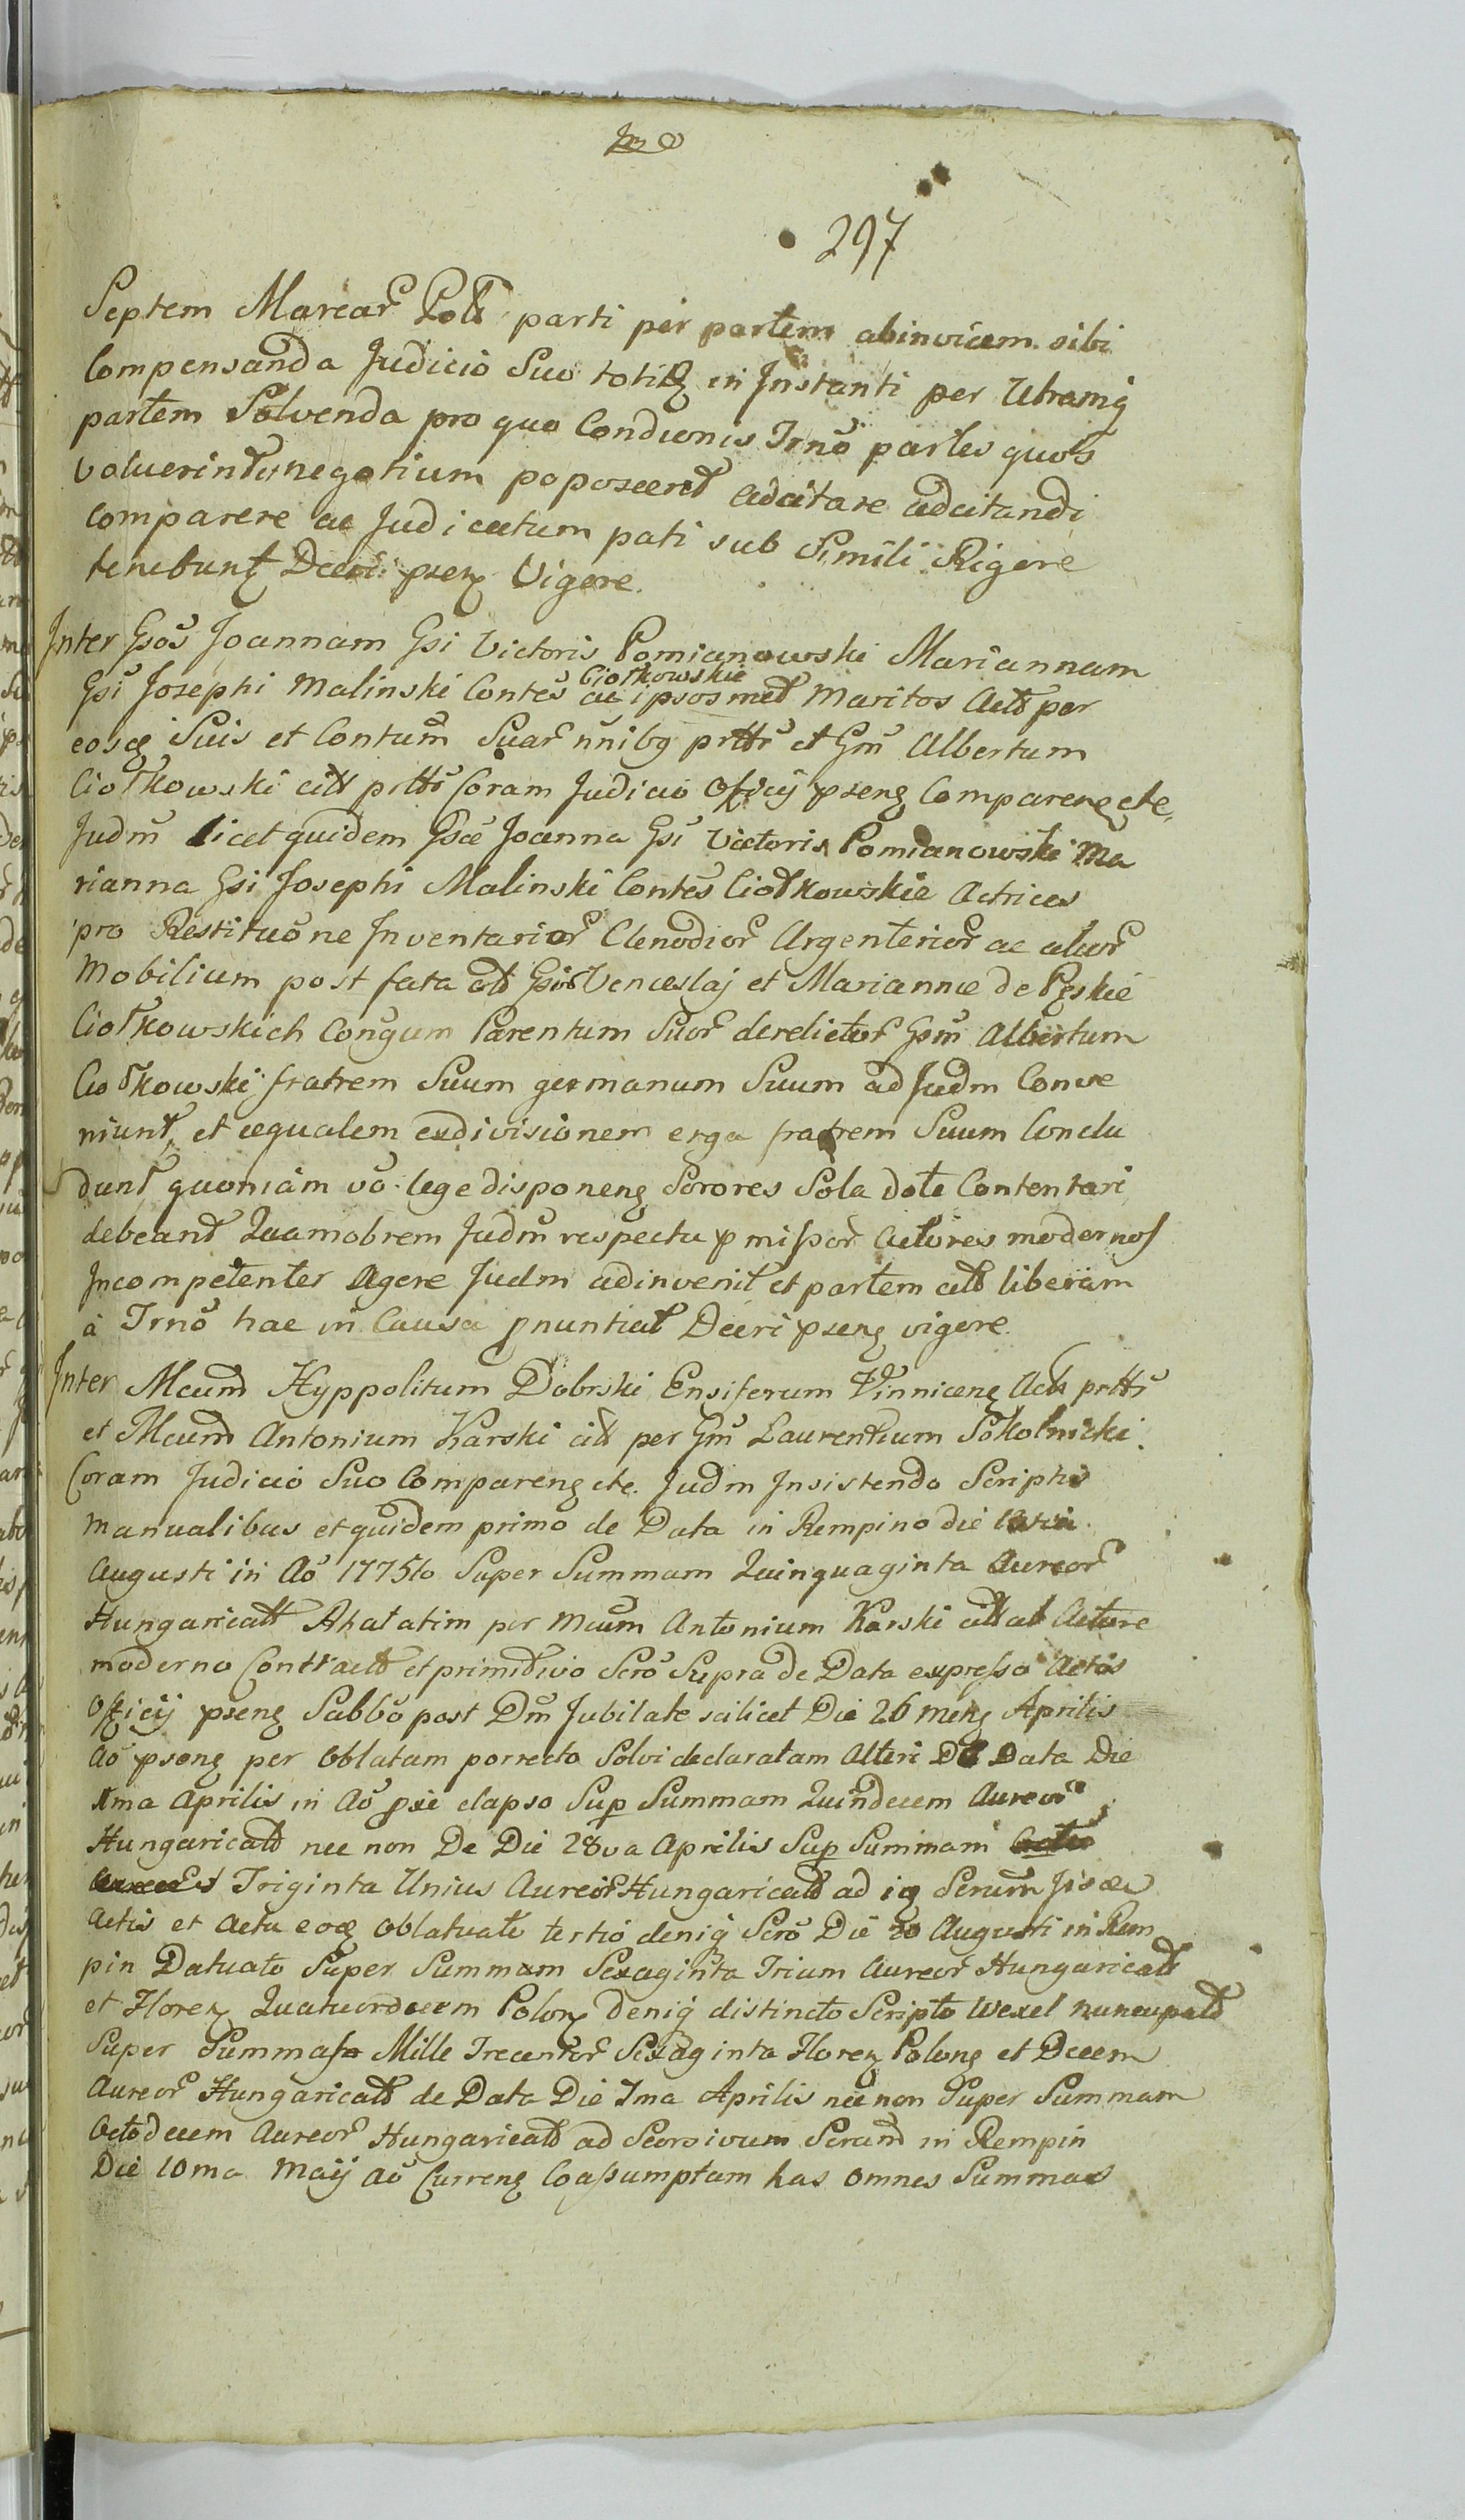 297
Septem Marcar Poll parti per partem abinvicem sibi
Compensanda Judicio Suo totiq in Instanti per Utramq
partem Solvenda pro quo Condionis Trnõ partes quots
voluerint et negotium poposcerit adcitare adcitandi
comparere ac Judicatum pati sub Simili Rigore
tenebunt Decri psenz Vigore.
Inter Gsos Joannam Gsi Victoris Pomianowski Mariannam
Gsi Josephi Malinski Contes Ciołkowskie ac ipsosmet Maritos Acts per
eosq Suis et Contum Suar nnibg prtts et Gm Albertum
Ciołkowski citt prtts Coram Judicio Officij psenz Comparenz etc.
Judm licet quidem Gsæ Joanna Gsi Victoris Pomianowski Ma
rianna Gsi Josephi Malinski Contes Ciołkowskie Actrices
pro Restituõne Inventarior Clenodior Argenterior ac alior
Mobilium post fata olt Gsor Venceslaj et Mariannæ de Pęskie
Ciołkowskich Congum Parentum Suor derelictor Gsm Albertum
Ciołkowski fratrem Suum germanum Suum ad Judm Conve
niunt, et æqualem exdivisionem erga fratrem Suum Conclu
dunt quoniam võ lege disponenz Sorores Sola dote Contentari
debeant Quamobrem Judm respectu pmissor Actores modernos
Incompetenter Agere Judm adinvenit et partem citt liberam
à Trnõ hac in Causa pnuntiat Decri psenz vigore.
Inter Mcum Hyppolitum Dobrski Ensiferum Vinnicenz Act prtts
et Mcum Antonium Karski citt per Gm Laurentium Sokolnicki.
Coram Judicio Suo Comparenz etc. Judm Insistendo Scriptis
manualibus et quidem primo de Data in Rempino die
Augusti in Aõ 1775to Super Summam Quinquaginta Aureor
Hungaricatt per Mcum Antonium Karski citt ab Actore
moderno Contract et primitivo Scrõ Supra de Data expresso Actis
Officij psenz Sabbõ post Dm Jubilate scilicet Die 26 mens Aprilis
Aõ psenz per Oblatam porrecto Solvi declaratam Alteri De Data Die
1ma Aprilis in Aõ pxie elapso Sup Summam Quindecem Aureor
Hungaricalt nec non De Die 28va Aprilis Sup Summam
Triginta Unius Aureor Hungaricalt ad iq Serum Jisæ
Actis et Actu eoq Oblatuate tertio denig Scrõ Die 20 Augusti in Rem
pin Datuato Super Summam Sexaginta Trium Aureor Hungaricalt
et Florenz Quatuordecem Polonz deniq distincto Scripto Wexel nuncupalt
Super Summass Mille Trecentor Sexaginta Florenz Polonz et Decem
Aureor Hungaricalt de Data Die 1ma Aprilis nec non Super Summam
Octodecem Aureor Hungaricalt ad Seorsivum Scrum in Rempin
Die 10ma Maij Aõ Currenz Coassumptam has omnes Summas